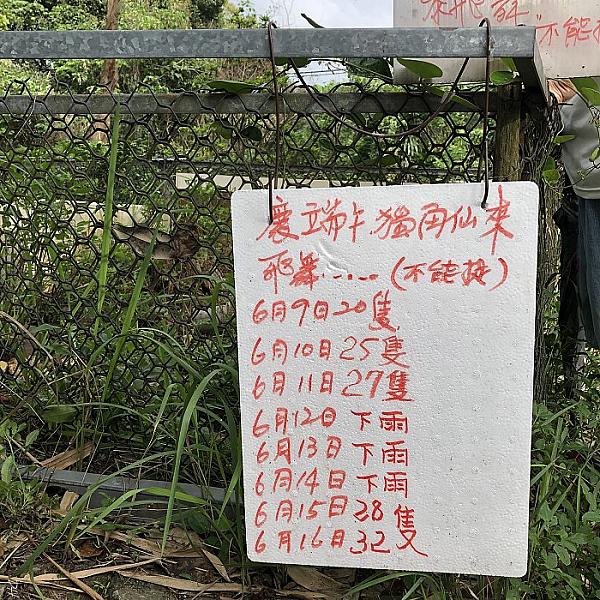 不能
慶端午獨角仙來
飛舞.....(不能接)
6月9日20隻
6月10日25隻
6月11日27隻
6月12日下雨
6月13日下雨
6月14日下雨
6月15日28隻
6月16日32隻